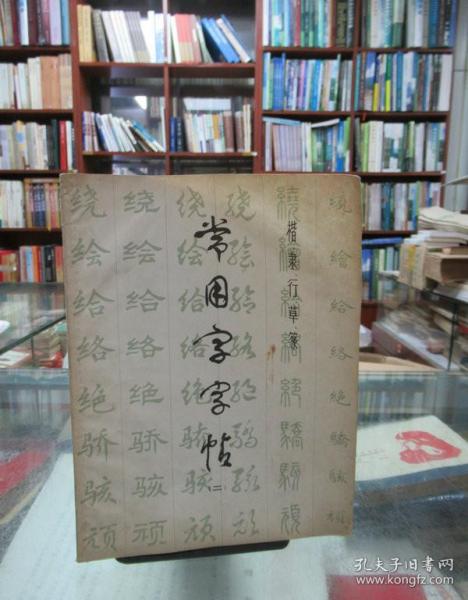 常用字字帖
(二)
楷隶行草篆
绕绘给络绝骄骇顽
绕绘给络绝骄骇顽
绕绘给络绝骄骇顽
绕绘给络绝骄骇顽
繞繪給絡絕驕駭頑
繞繪給絡絕驕駭頑
孔夫子旧书网
www.kongfz.com